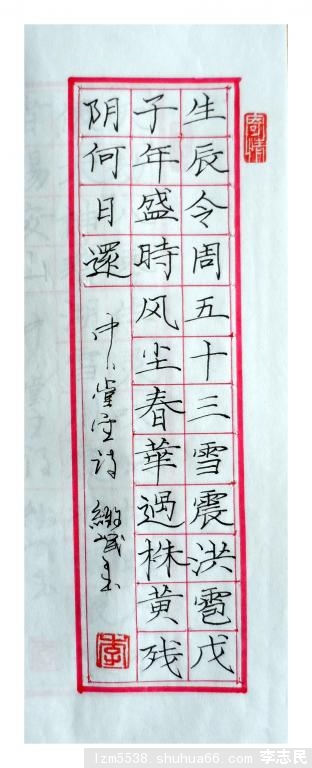 生辰令周五十三雪震洪雹戊
子年盛時风尘春華過株黄残
阴何日還
寄情
李
lzm5538.shuhua66.com 李志民